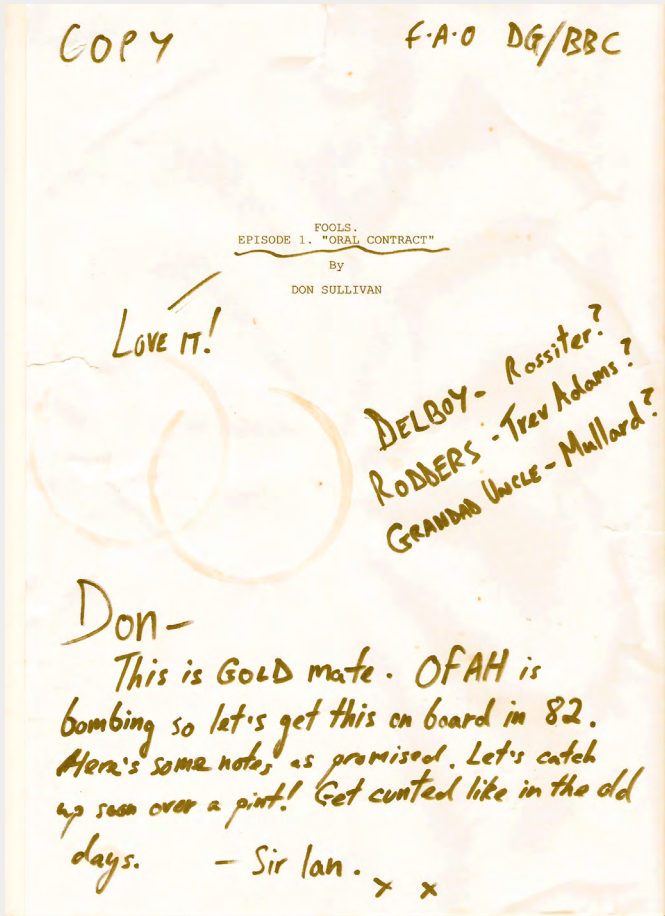 COPY
F.A.O DG/BBC
FOOLS.
EPISODE 1. "ORAL CONTRACT"
By
DON SULLIVAN
LOVE IT!
DELBOY - Rossiter?
RODDERS - Trev Adams?
GRANDAD UNCLE - Mullard?
Don-
This is GOLD mate. OFAH is
bombing so let's get this on board in 82.
Here's some notes as promised. Let's catch
up soon over a pint! Get cunted like in the old
days. - Sir Ian.
x x